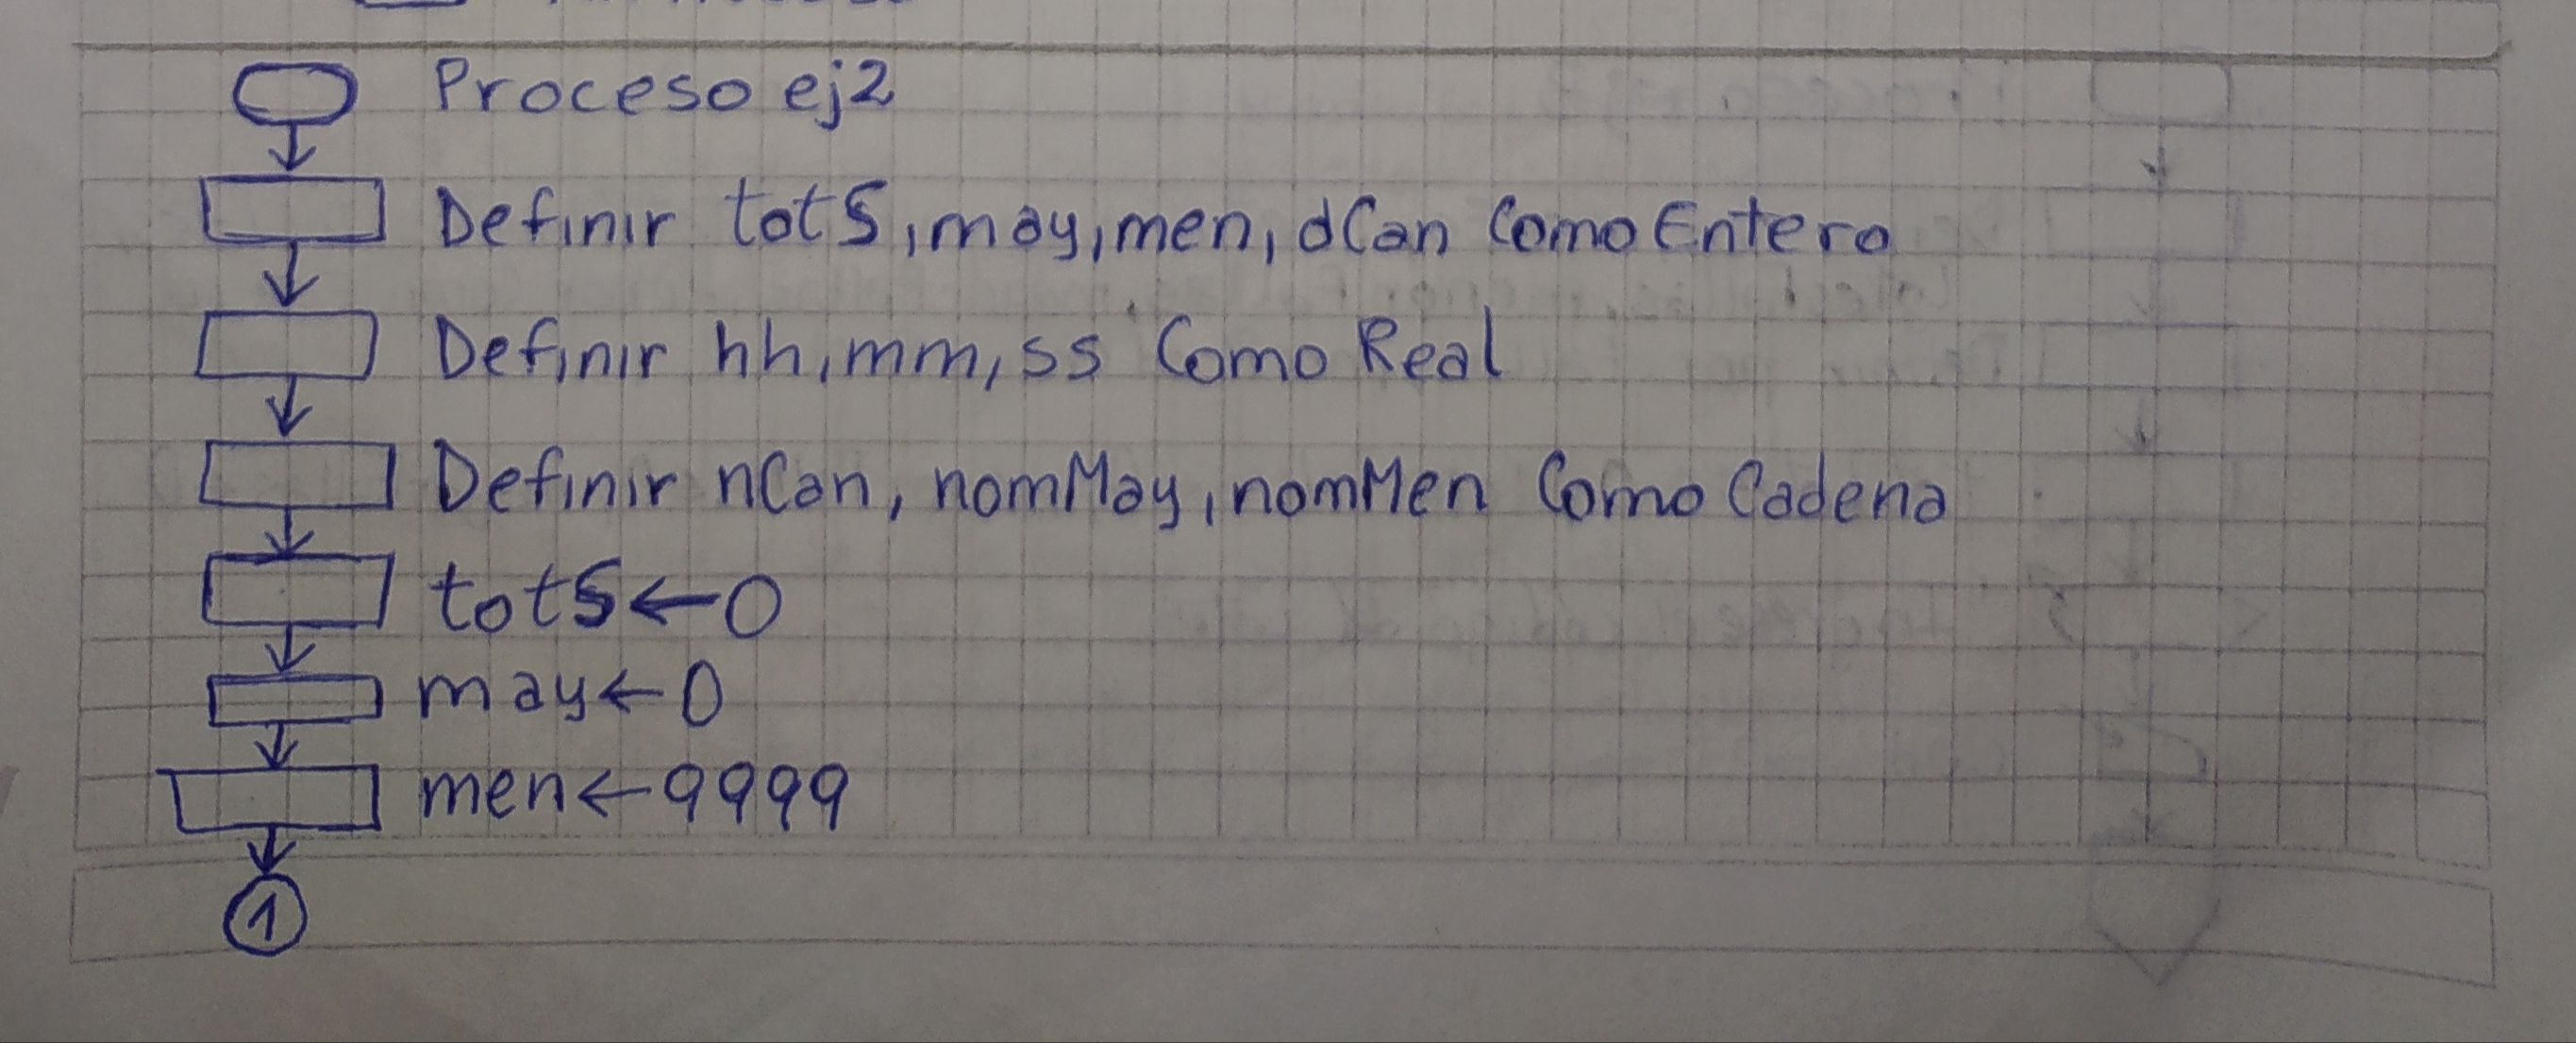 Proceso ej2
Definir totS, may, men, dCan Como Entero
Definir hh, mm, ss Como Real
Definir nCan, nomMay, nomMen Como Cadena
totS←0
may←0
men←9999
1